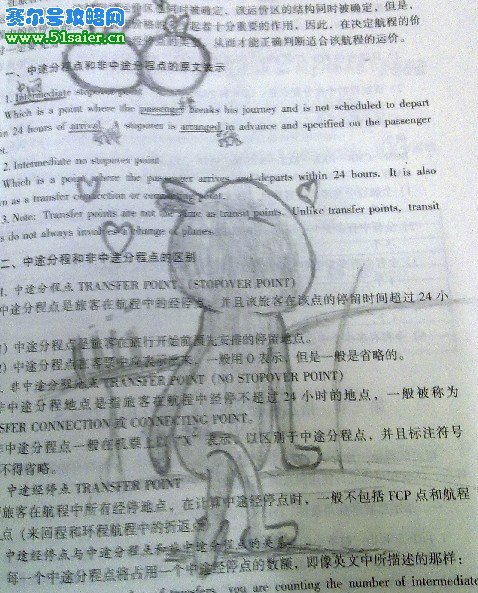 赛尔号攻略网
www.51saier.cn
价区 同时被确定，该运价区的结构同时被确定，但是，
着十分重要的作用，因此，在决定航程的价
从而才能正确判断适合该航程的运价。
一、中途分程点和非中途分程点的原文表示
1. Intermediate stopover point
Which is a point where the passenger breaks his journey and is not scheduled to depart
in 24 hours of arrival. A stopover is arranged in advance and specified on the passenger
et.
2. Intermediate no stopover point
Which is a point where the passenger arrives and departs within 24 hours. It is also
wn as a transfer connection or connecting point.
3. Note: Transfer points are not the same as transit points. Unlike transfer points, transit
s do not always involve a change of planes.
二、中途分程和非中途分程点的区别
1. 中途分程点 TRANSFER POINT (STOPOVER POINT)
中途分程点是旅客在航程中的经停点，并且该旅客在该点的停留时间超过 24 小
）中途分程点是旅客在旅行开始前预先安排的停留地点。
）中途分程点在客票中应表示出来，一般用 O 表示，但是一般是省略的。
. 非中途分程地点 TRANSFER POINT (NO STOPOVER POINT)
非中途分程地点是指旅客在航程中经停不超过 24 小时的地点，一般被称为
SFER CONNECTION 或 CONNECTING POINT。
非中途分程点一般在机票上以 "X" 表示，以区别于中途分程点，并且标注符号
不得省略。
中途经停点 TRANSFER POINT
旅客在航程中所有经停地点，在计算中途经停点时，一般不包括 FCP 点和航程
点（来回程和环程航程中的折返点
中途经停点与中途分程点和非中途分程点的关系
每一个中途分程点将占用一个中途经停点的数额，即像英文中所描述的那样：
of transfers, you are counting the number of intermediate